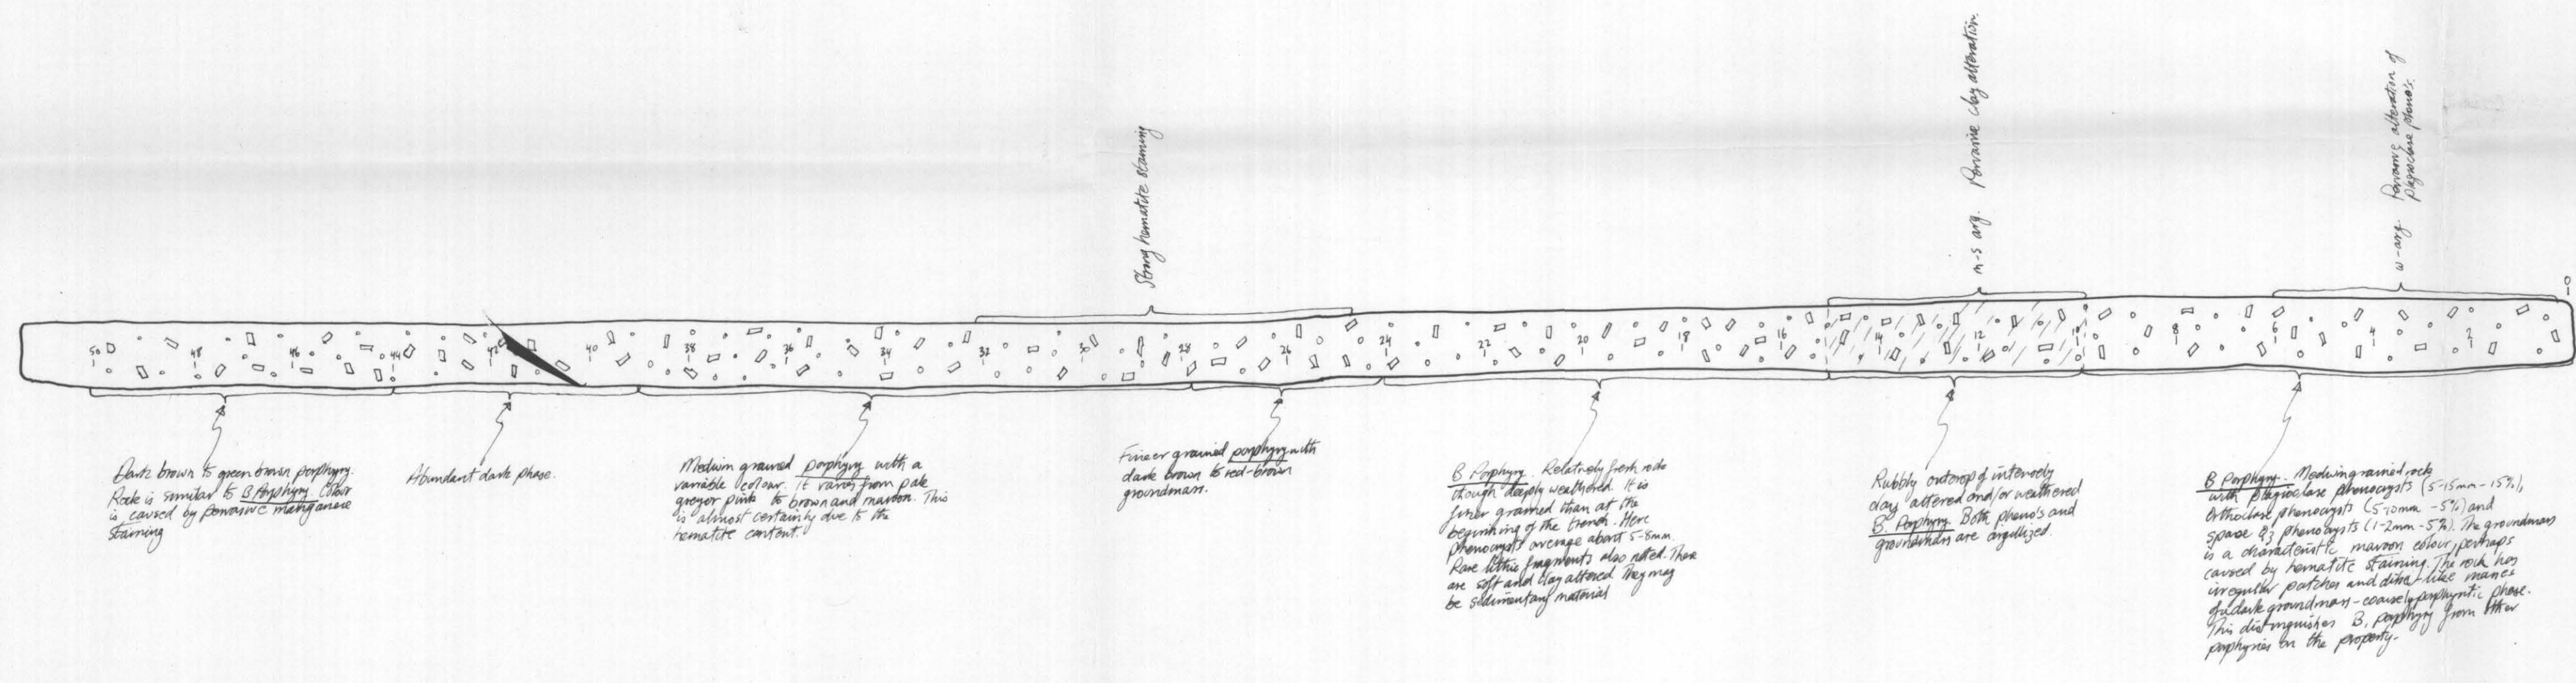 Strong hematite staining
m-s arg. Pervasive clay alteration.
w-arg. Pervasive alteration of
plagioclase pheno's.
0
50 48 46 44 42 40 38 36 34 32 30 28 26 24 22 20 18 16 14 12 10 8 6 4 2
Dark brown to green brown porphyry.
Rock is similar to B Porphyry. Colour
is caused by pervasive manganese
staining
Abundant dark phase.
Medium grained porphyry with a
variable colour. It varies from pale
grey or pink to brown and maroon. This
is almost certainly due to the
hematite content.
Finer grained porphyry with
dark brown to red-brown
groundmass.
B Porphyry. Relatively fresh rock
though deeply weathered. It is
finer grained than at the
beginning of the trench. Here
phenocrysts average about 5-8mm.
Rare lithic fragments also noted. These
are soft and clay altered. They may
be sedimentary material
Rubbly outcrop of intensely
clay altered and/or weathered
B. Porphyry. Both pheno's and
groundmass are argillized.
B Porphyry. Medium grained rock
with plagioclase phenocrysts (5-15mm-15%),
Orthoclase phenocrysts (5-10mm -5%) and
sparse Qz phenocrysts (1-2mm-5%). The groundmass
is a characteristic maroon colour, perhaps
caused by hematite staining. The rock has
irregular patches and dike-like masses
of a dark groundmass-coarsely porphyritic phase.
This distinguishes B, porphyry from other
porphyries on the property.